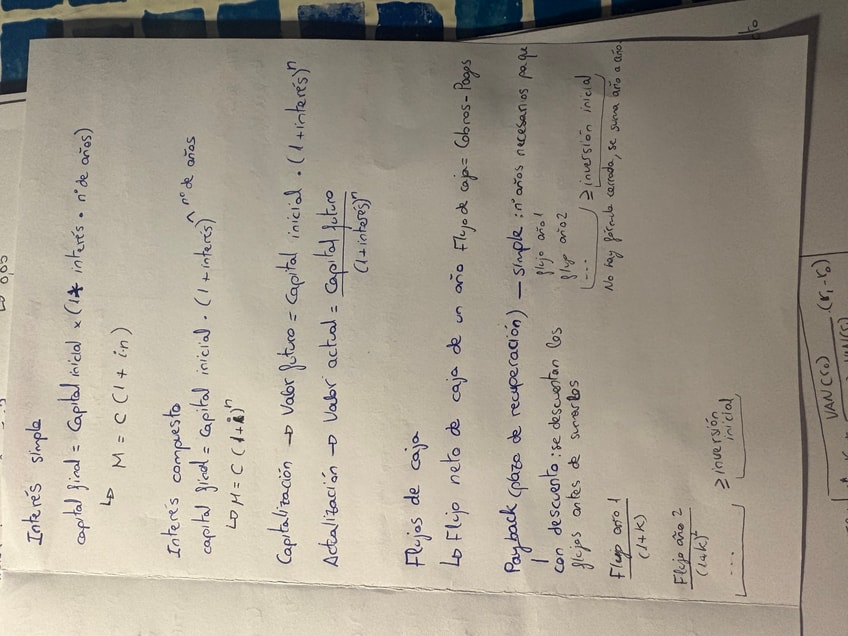 Interés simple
capital final = Capital inicial x (1+ interés • nº de años)
↳ M = C (1 + in)
Interés compuesto
capital final = capital inicial · (1 + interés)^nº de años
↳ M = C (1+i)^n
Capitalización → Valor futuro = Capital inicial · (1+interés)^n
Actualización → Valor actual = Capital futuro
(1+interés)^n
Flujos de caja
↳ Flujo neto de caja de un año Flujo de caja = Cobros - Pagos
Payback (plazo de recuperación) — simple: nº años necesarios pa que
flujo año 1
flujo año 2
... ≥ inversión inicial
No hay fórmula cerrada, se suma año a año.
con descuento: se descuentan los
flujos antes de sumarlos
Flujo año 1
(1+K)
Flujo año 2
(1+K)²
... ≥ inversión
inicial
0,05
VAN(r0)
(r1-r0)